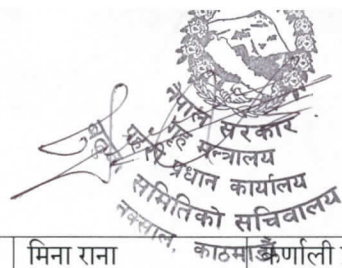 नेपाल सरकार
गृह मन्त्रालय
प्रहरी प्रधान कार्यालय
समितिको सचिवालय
नक्साल, काठमाडौं
मिना राना
कर्णाली